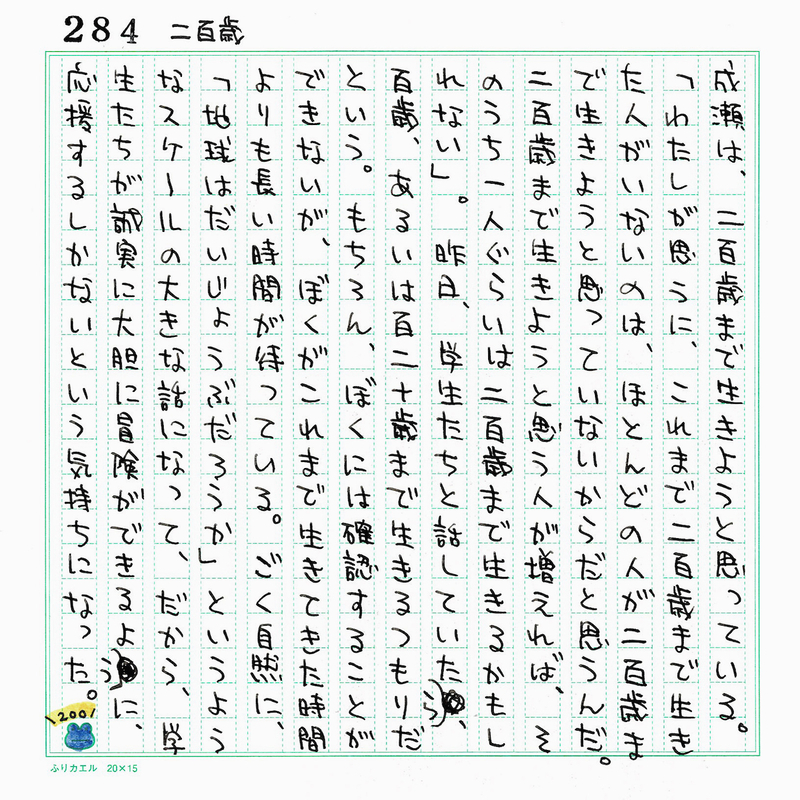 284 二百歳
成瀬は、二百歳まで生きようと思っている。
「わたしが思うに、これまで二百歳まで生き
た人がいないのは、ほとんどの人が二百歳ま
で生きようと思っていないからだと思うんだ。
二百歳まで生きようと思う人が増えれば、そ
のうち一人ぐらいは二百歳まで生きるかもし
れない」。昨日、学生たちと話していたら、
百歳、あるいは百二十歳まで生きるつもりだ
という。もちろん、ぼくには確認することが
できないが、ぼくがこれまで生きてきた時間
よりも長い時間が待っている。ごく自然に、
「地球はだいじょうぶだろうか」というよう
なスケールの大きな話になって、だから、学
生たちが誠実に大胆に冒険ができるように、
応援するしかないという気持ちになった。
\200/
ふりカエル 20×15